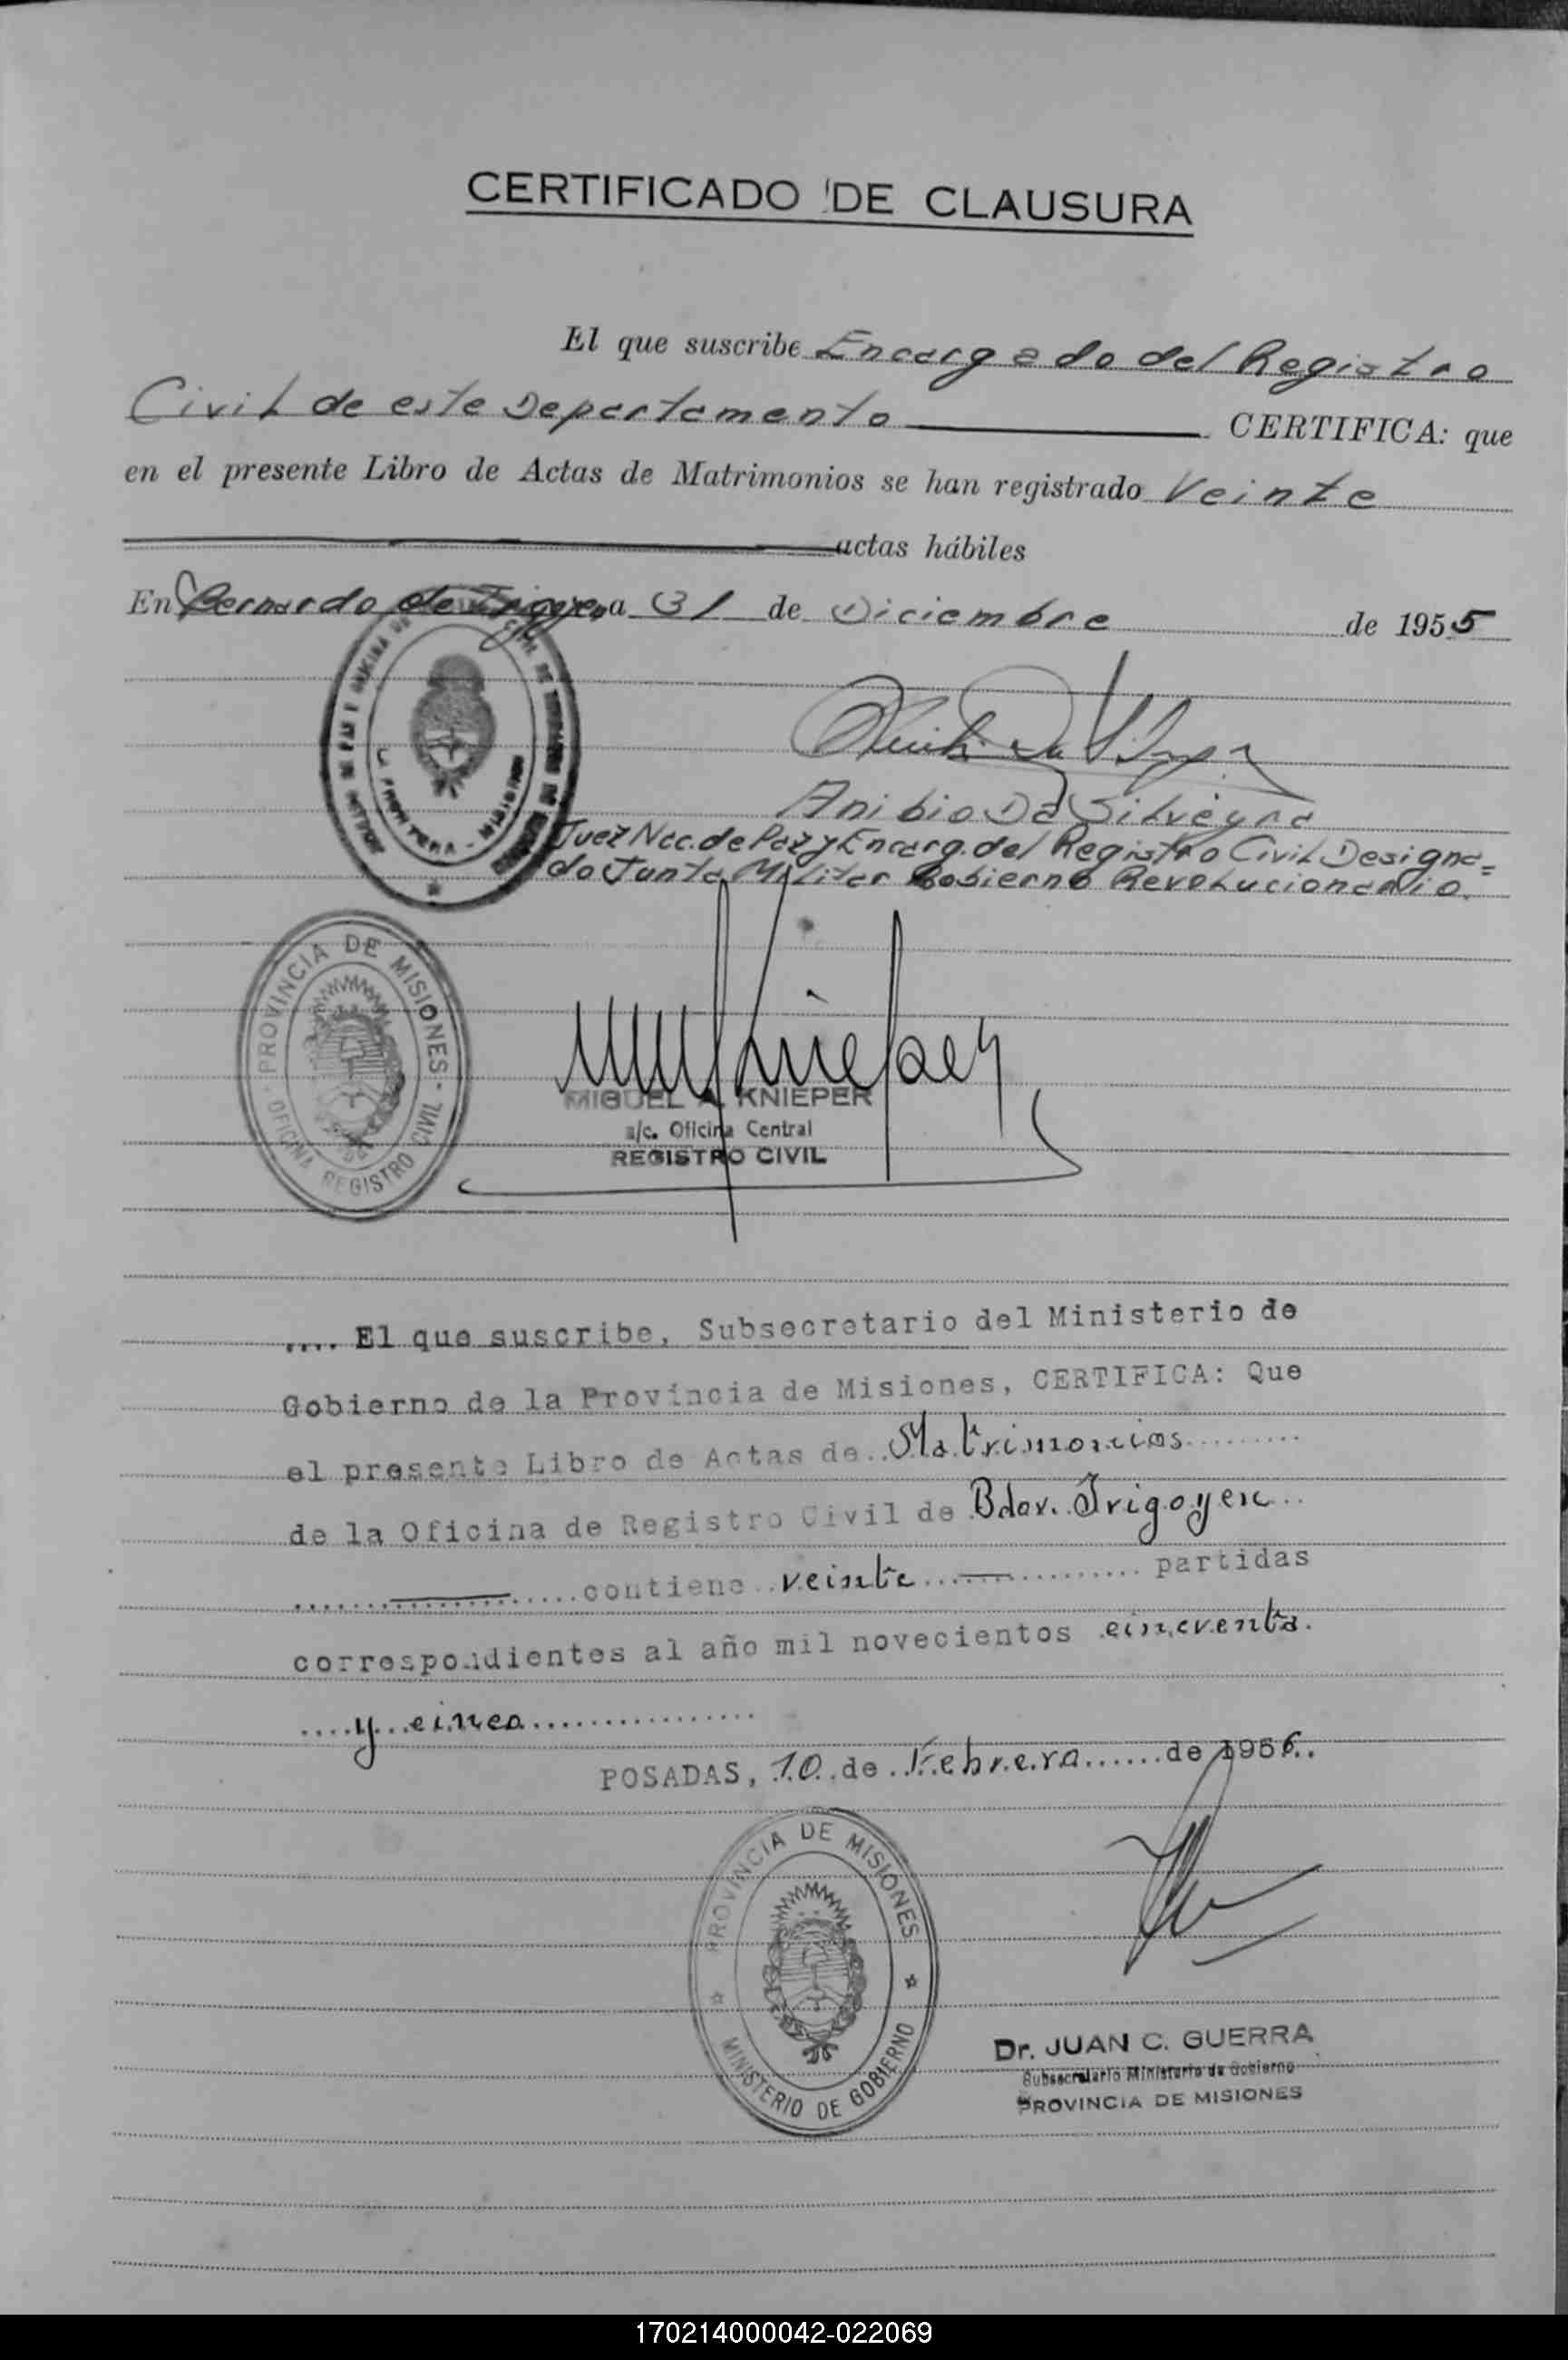 CERTIFICADO DE CLAUSURA
El que suscribe Encargado del Registro
Civil de este Departamento CERTIFICA: que
en el presente Libro de Actas de Matrimonios se han registrado Veinte
actas hábiles
En Bernardo de Irigoyen a 31 de Diciembre de 1955
Anibio Da Silveyra
Juez Nac. de Paz y Encarg. del Registro Civil Designa=
do Junta Militar Gobierno Revolucionario.
PROVINCIA DE MISIONES
OFICINA REGISTRO CIVIL
MIGUEL A. KNIEPER
a/c. Oficina Central
REGISTRO CIVIL
.... El que suscribe, Subsecretario del Ministerio de
Gobierno de la Provincia de Misiones, CERTIFICA: Que
el presente Libro de Actas de Matrimonios
de la Oficina de Registro Civil de Bdo. Irigoyen
contiene veinte partidas
correspondientes al año mil novecientos cincuenta
y cinco
POSADAS, 10 de Febrero de 1956.
PROVINCIA DE MISIONES
MINISTERIO DE GOBIERNO
Dr. JUAN C. GUERRA
Subsecretario Ministerio de Gobierno
PROVINCIA DE MISIONES
170214000042-022069